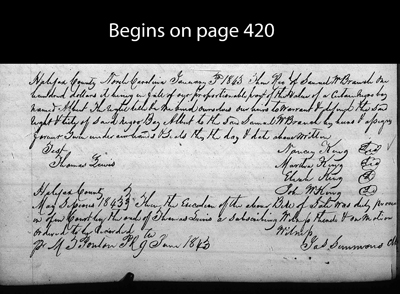 Begins on page 420
Halifax County North Carolina January 3d 1843 Then Rec'd of Samuel W Branch One
hundred dollars it being in full of our proportionable part of the Value of a Certain Negro boy
named Albert The right title to We bind ourselves our heirs to Warrant & defend the said
right & title of said Negro Boy Albert to the said Samuel W Branch his heirs & assigns
forever Given under our hands & seals this the day & date above Written
Test Nancy King Seal
Thomas Lewis Martha King Seal
King
King
Halifax County
May Sessions 1843 Then the Execution of the above Bill of Sale Was duly proven
in Open Court by the oath of Thomas Lewis a subscribing Witness thereto & on Motion
ordered to be Recorded Witness
9 June 1843 Jas Simmons Clk